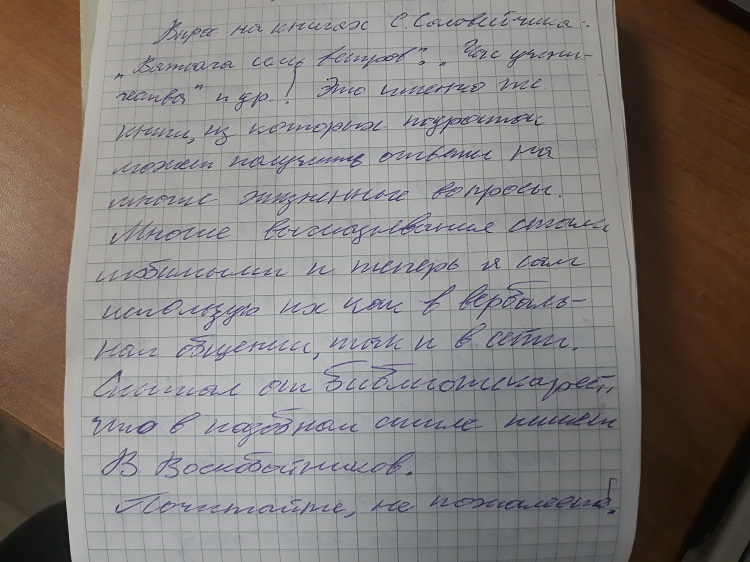 Вырос на книгах С. Соловейчика:
„Ватага семь ветров", „Час учени-
чества" и др.! Это именно те
книги, из которых подросток
может получить ответы на
многие жизненные вопросы.
Многие высказывания стали
любимыми и теперь я сам
использую их как в вербаль-
ном общении, так и в сети.
Слышал от библиотекарей,
что в подобном стиле пишет
В. Воскобойников.
Почитайте, не пожалеете!